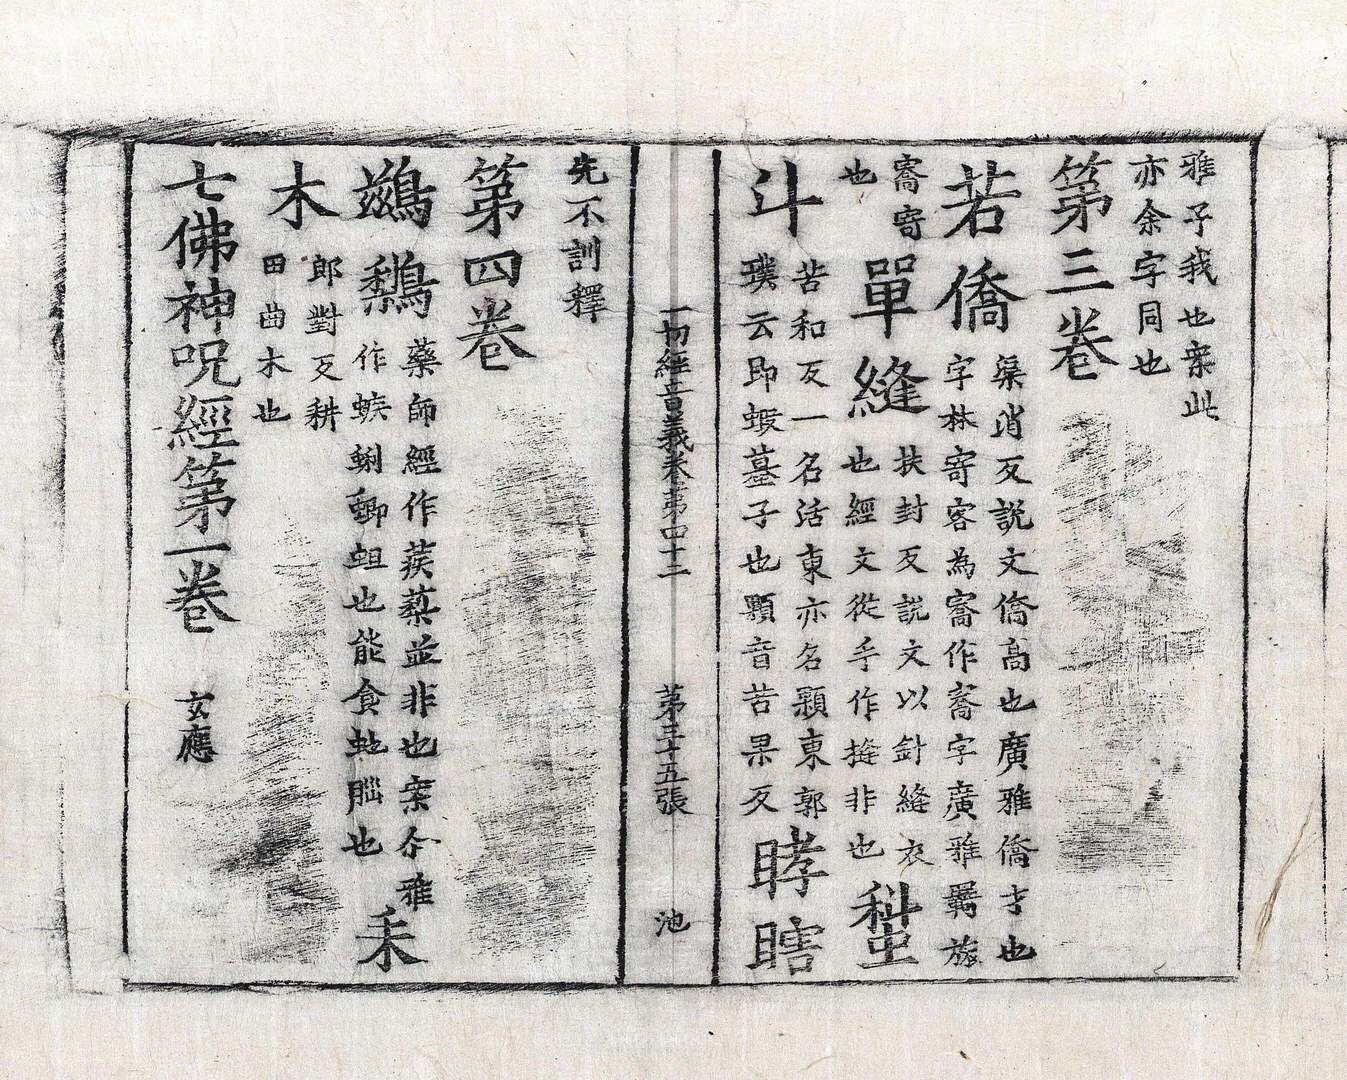 雅予我也案此
亦余字同也
第三卷
若僑
渠消反説文僑高也廣雅僑才也
字林寄客為㝯作㝯字廣雅羈旅
㝯寄
也
單縫
扶封反説文以針縫衣
也經文從手作捀非也
斗
苦和反一名活東亦名顆東郭
璞云即蝦蟇子也顆音苦果反
瞎
一切經音義卷第四十二 第三十五張 池
先不訓釋
第四卷
鷀鵹
藥師經作蒺蔾並非也案尒雅
作螏蜊蝍蛆也能食虵腦也
耒
木
郎對反耕
田曲木也
七佛神呪經第一卷 玄應